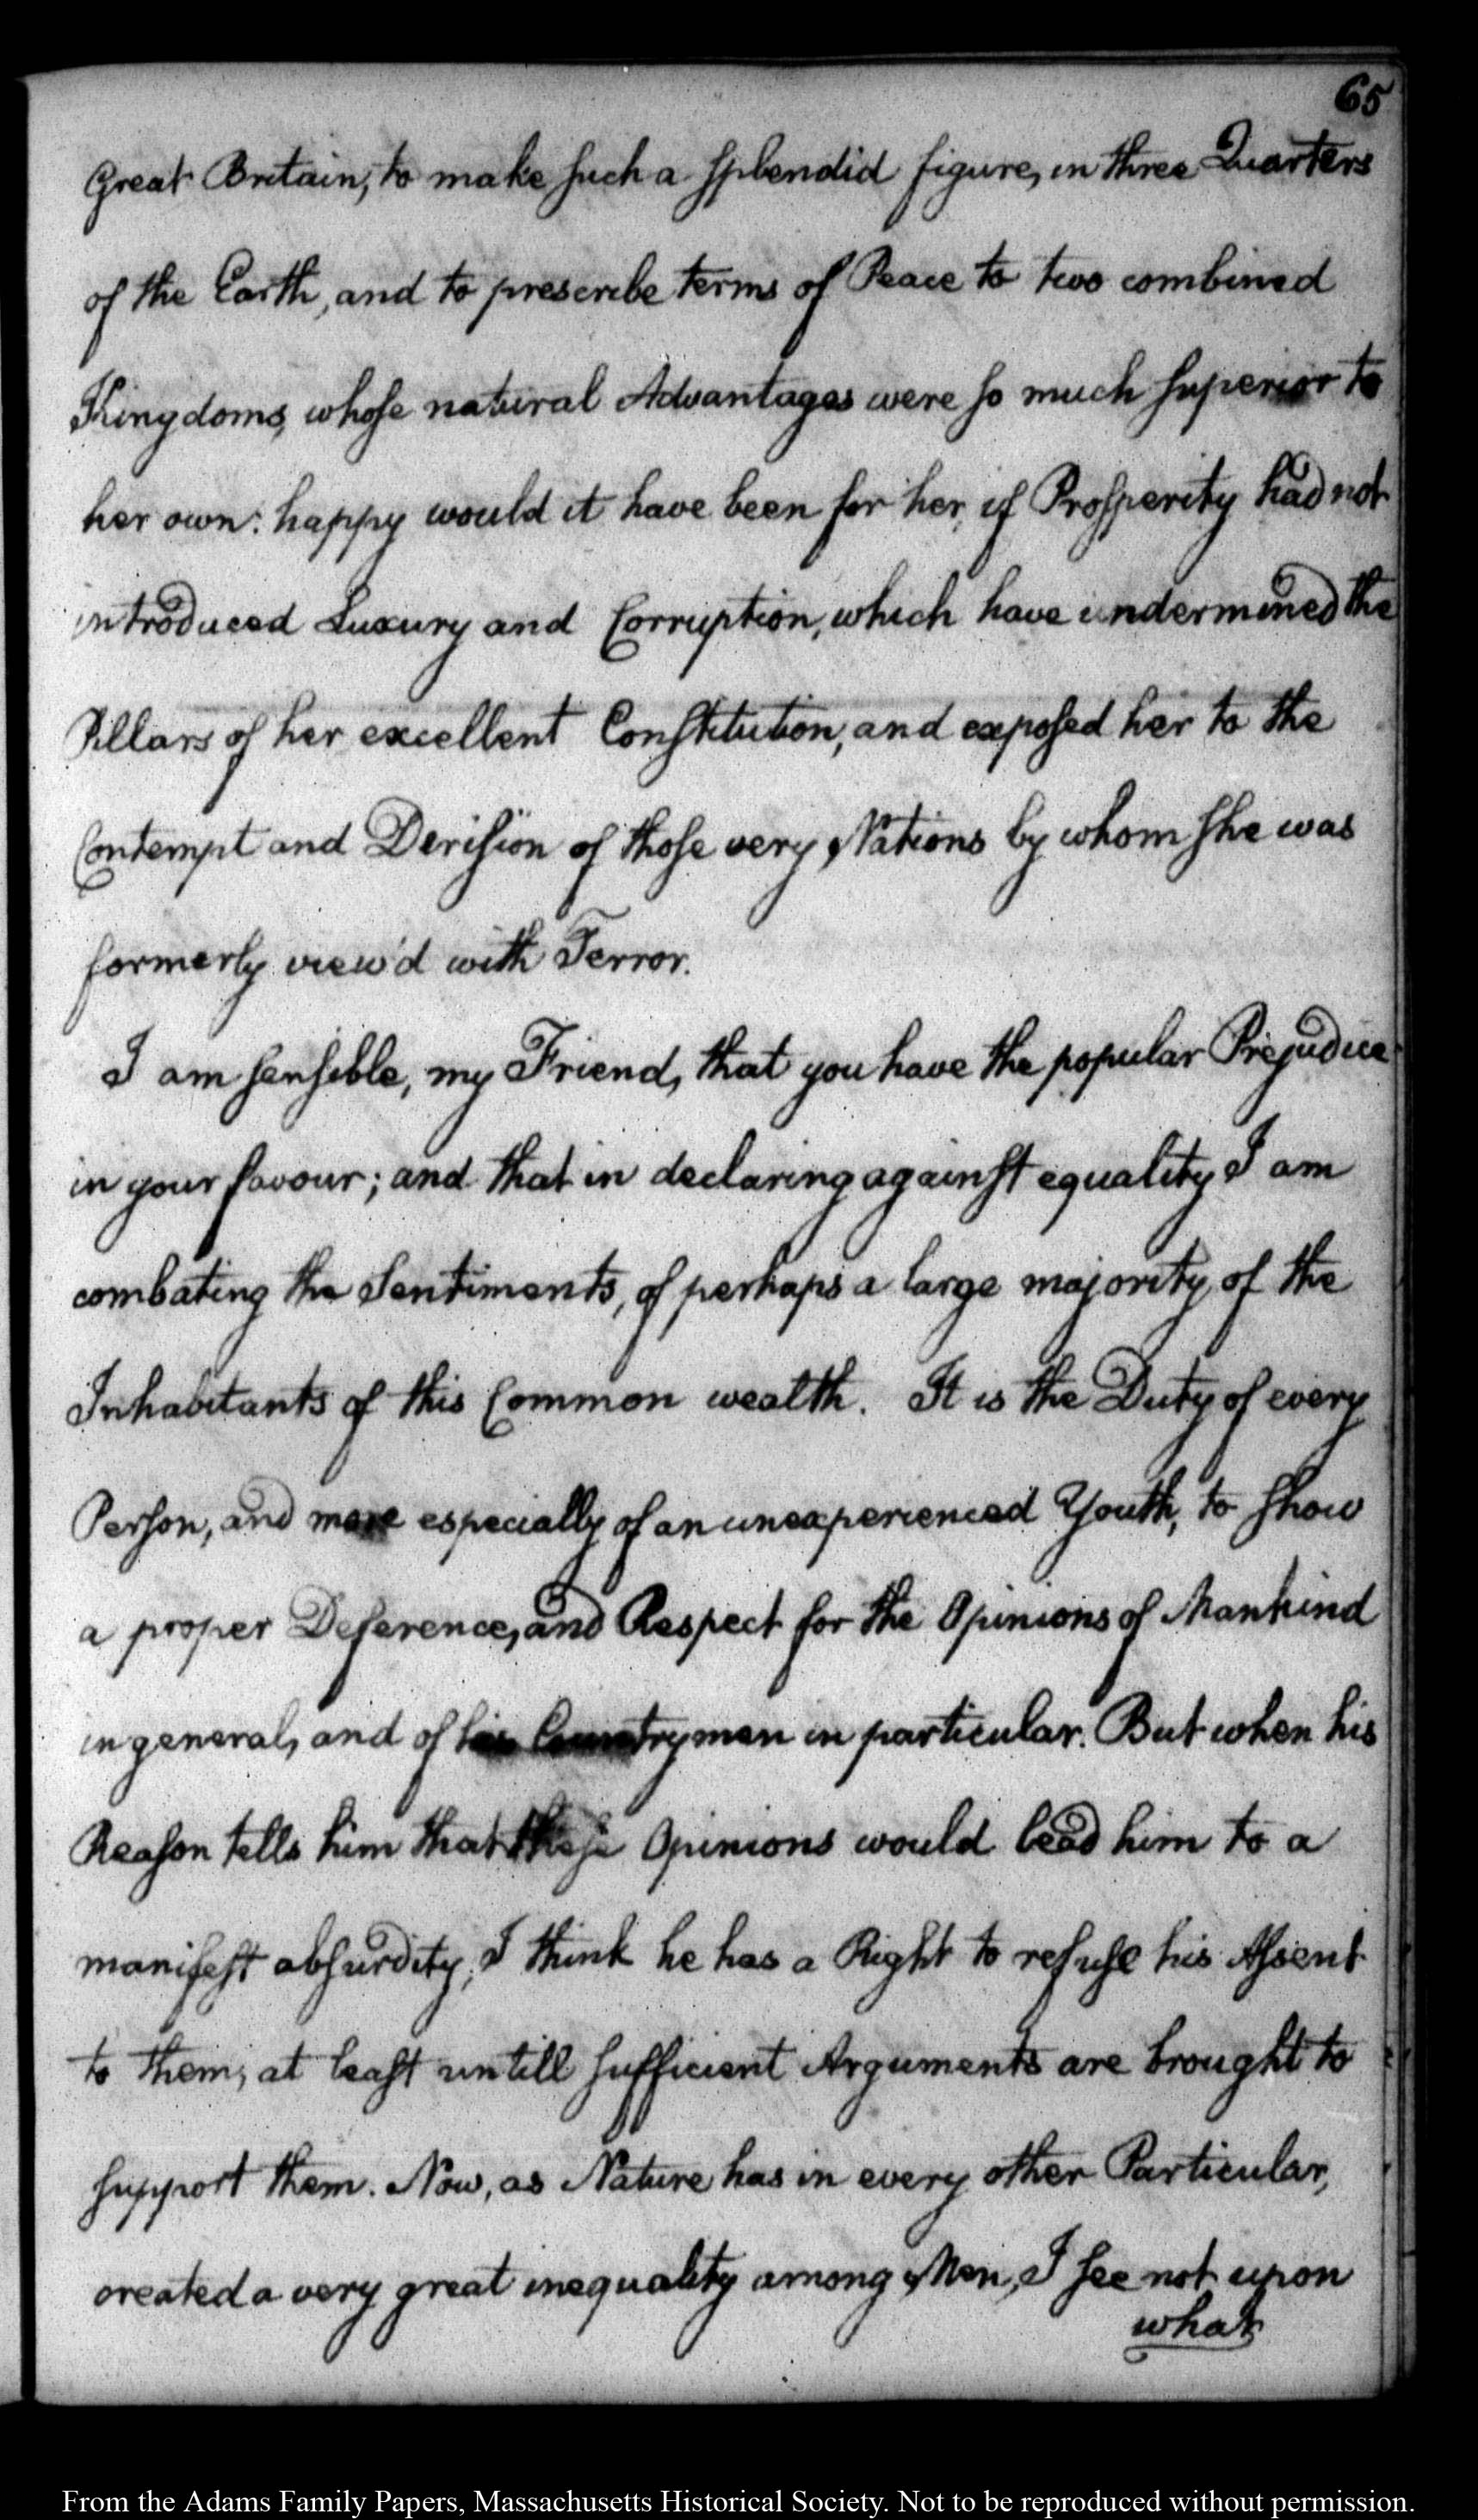 65
Great Britain, to make such a splendid figure, in three Quarters
of the Earth, and to prescribe terms of Peace to two combined
Kingdoms, whose natural Advantages were so much superior to
her own: happy would it have been for her, if Prosperity had not
introduced Luxury and Corruption, which have undermined the
Pillars of her excellent Constitution, and exposed her to the
Contempt and Derision of those very Nations by whom she was
formerly view'd with Terror.
I am sensible, my Friend, that you have the popular Prejudice
in your favour; and that in declaring against equality, I am
combating the Sentiments, of perhaps a large majority, of the
Inhabitants of this Common wealth. It is the Duty of every
Person, and more especially of an unexperienced Youth, to show
a proper Deference, and Respect for the Opinions of Mankind
in general, and of his Countrymen in particular. But when his
Reason tells him that these Opinions would lead him to a
manifest absurdity, I think he has a Right to refuse his Assent
to them; at least untill sufficient Arguments are brought to
support them. Now, as Nature has in every other Particular,
created a very great inequality among Men, I see not upon
what
From the Adams Family Papers, Massachusetts Historical Society. Not to be reproduced without permission.